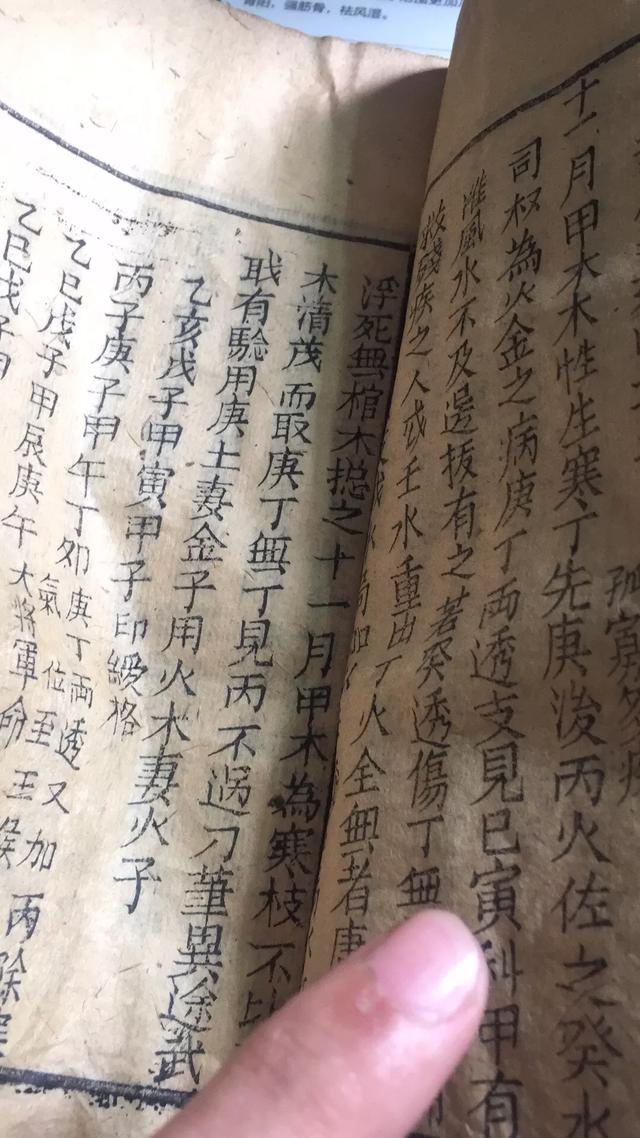 强筋骨，祛风湿。
孤寡
十一月甲木木性生寒丁先庚後丙火佐之癸水
司权為火金之病庚丁両透支見巳寅科甲有
准風水不及邊抜有之若癸透傷丁無
技殘疾之人或壬水重出丁火全無者庚
浮死無棺木捴之十一月甲木為寒枝不比
木清茂而取庚丁無丁見丙不過刀筆異途武
耿有驗用庚土妻金子用火木妻火子
乙亥戊子甲寅甲子印綬格
丙子庚子甲午丁卯庚丁両透又加丙除寒
氣位至王侯
乙巳戊子甲辰庚午大將軍命
乙巳戊子甲